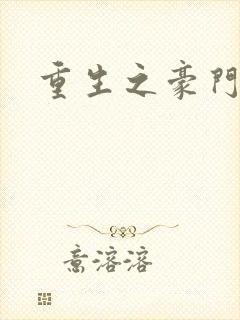 重生之豪門
意溶溶